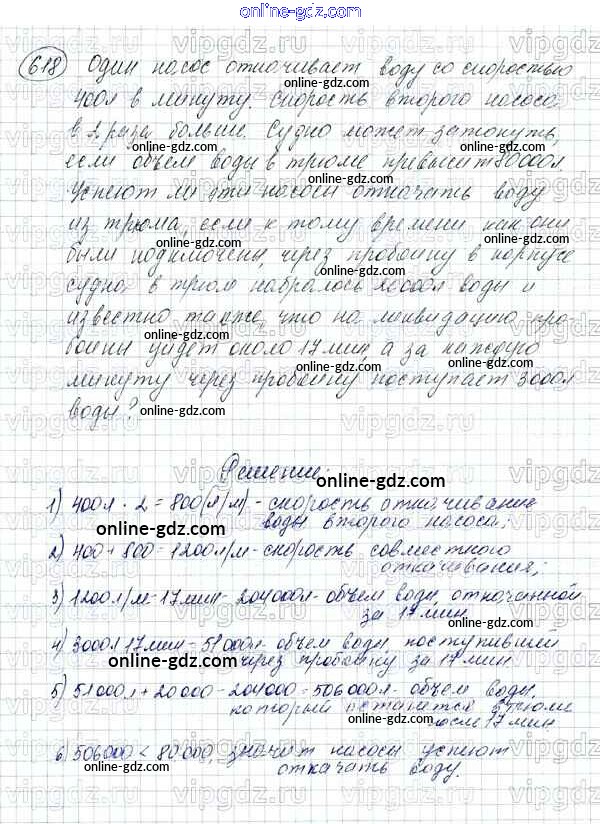 618 Один насос откачивает воду со скоростью
400л в минуту. Скорость второго насоса
в 2 раза больше. Судно может затонуть,
если объем воды в трюме превысит 80000л.
Успеют ли эти насосы откачать воду
из трюма, если к тому времени как они
были подключены, через пробоину в корпусе
судна в трюм набралось 20000л воды и
известно также, что на ликвидацию про-
боины уйдет около 17 мин, а за каждую
минуту через пробоину поступает 3000л
воды?
Решение:
1) 400л · 2 = 800(л/м) - скорость откачивание
воды второго насоса;
2) 400 + 800 = 1200л/м - скорость совместного
откачивания;
3) 1200л/м · 17мин = 204000л - объем воды, откачанной
за 17 мин
4) 3000л 17мин = 51000л - объем воды, поступившей
через пробоину за 17 мин
5) 51000л + 20000 - 204000 = 506000л - объем воды,
который останется в трюме
после 17 мин.
6) 506000 < 80000, значит насосы успеют
откачать воду.
online-gdz.com
vipgdz.com